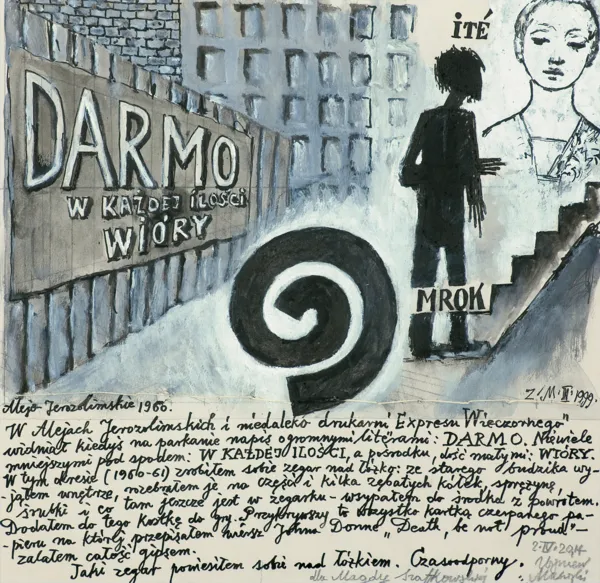 iTÉ
DARMO
W KAŻDEJ ILOŚCI
WIÓRY
MROK
Z.(M. III. 1999.
Aleje Jerozolimskie 1960.
W Alejach Jerozolimskich i niedaleko drukarni „Expresu Wieczornego"
widniał kiedyś na parkanie napis ogromnymi literami: DARMO. Niewiele
mniejszymi pod spodem: W KAŻDEJ ILOŚCI, a pośrodku, dość małymi: WIÓRY.
W tym okresie (1960-61) zrobiłem sobie zegar nad łóżko: ze starego budzika wy-
jąłem wnętrze, rozebrałem je na części i kilka zębatych kółek, sprężynę,
śrubki i co tam jeszcze jest w zegarku - wsypałem do środka z powrotem.
Dodałem do tego kostkę do gry. Przykrywszy to wszystko kartką czerpanego pa-
pieru na której przepisałem wiersz Johna Donne „Death, be not proud" -
zalałem całość gipsem.
Taki zegar powiesiłem sobie nad łóżkiem. Czasoodporny.
2.IV.2014
dla Magdy